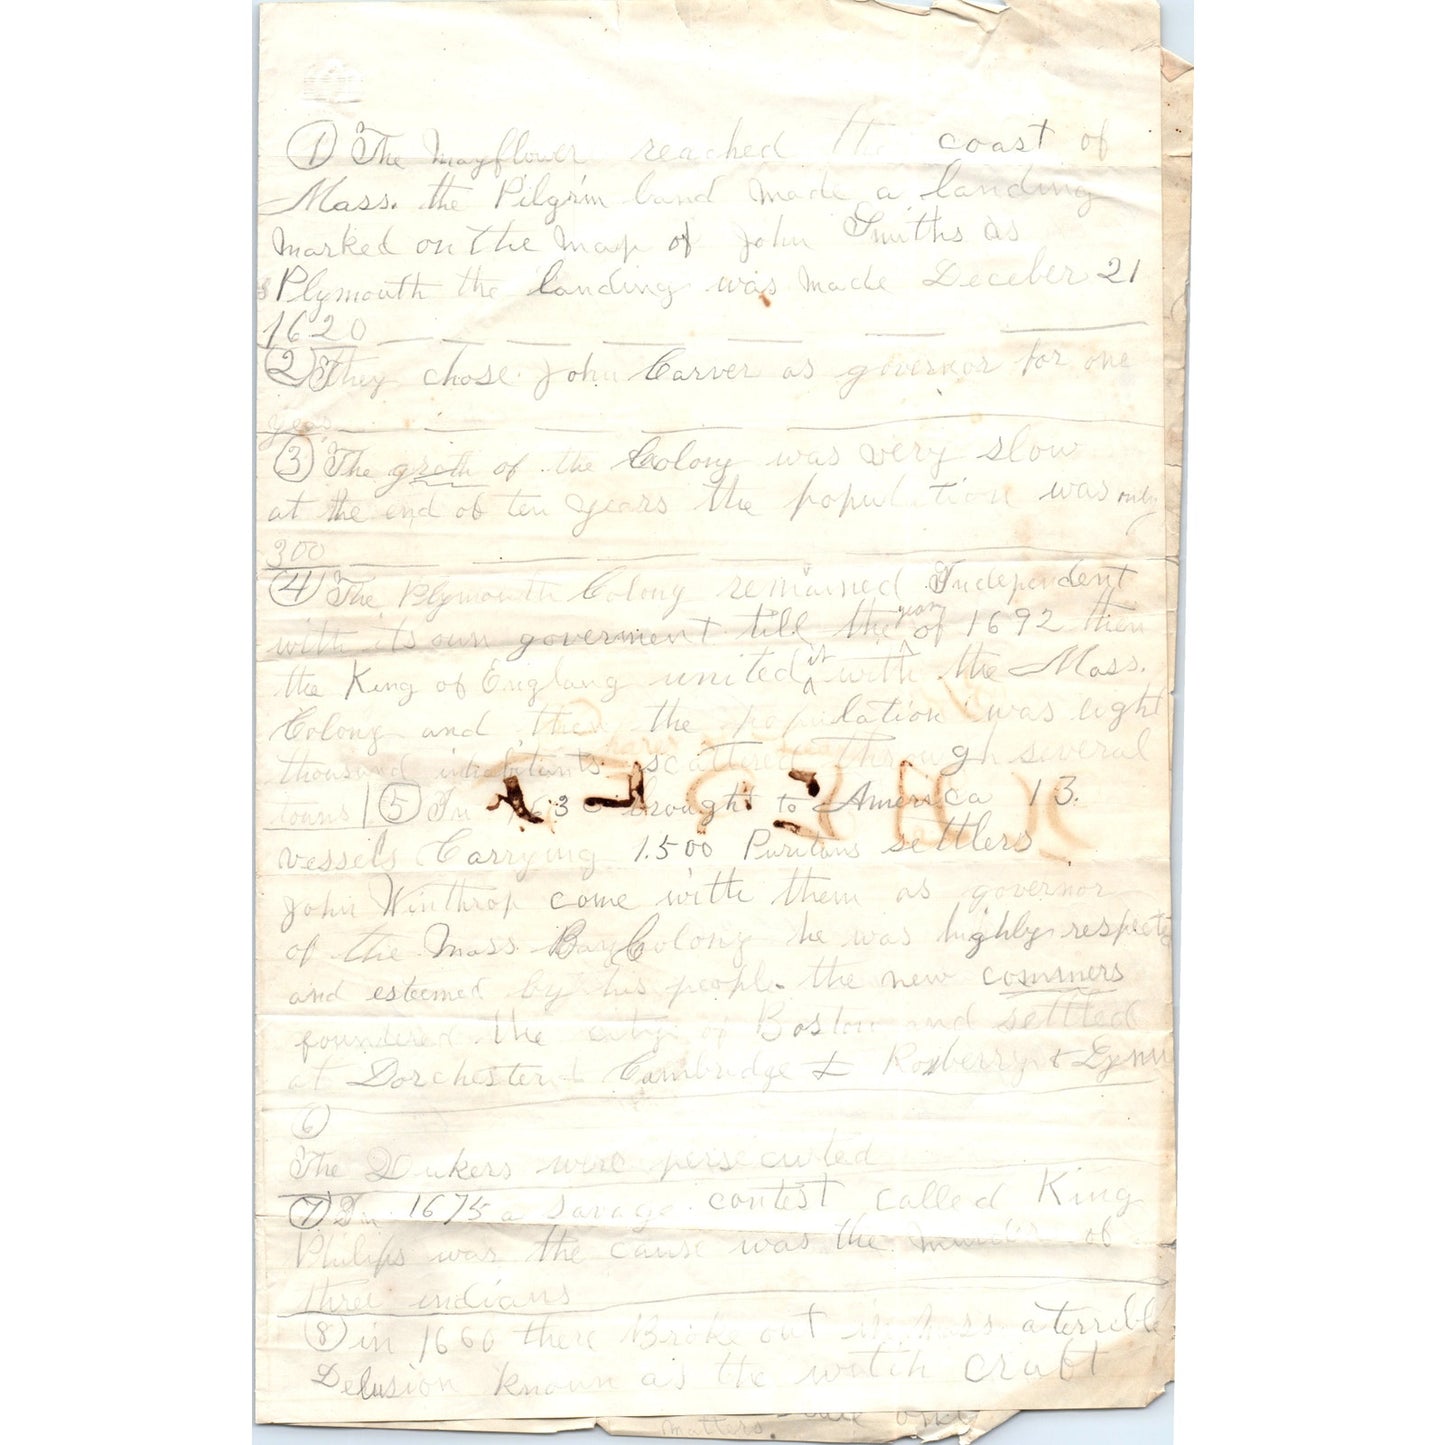 1) The Mayflower reached the coast of
Mass. the Pilgrim band made a landing
marked on the map of John Smiths as
Plymouth the landing was made Deceber 21
1620
2) They chose John Carver as governor for one
year
3) The groth of the Colony was very slow
at the end of ten years the population was only
300
4) The Plymouth Colony remained Independent
with its own goverment till the year of 1692 then
the King of England united it with the Mass.
Colony and then the population was eight
thousand scattered through several
towns 5) In 1630 brought to America 13.
vessels Carrying 1.500 Puritans settlers
John Winthrop come with them as governor
of the Mass Bay Colony he was highly respected
and esteemed by his people the new commers
foundered the city of Boston and settled
at Dorchester & Cambridge & Roxberry & Lynn
6)
The Quakers were persecuted
7) In 1675 a savage contest called King
Philips was the cause was the of
three indians
8) in 1660 there Broke out in Mass a terrible
Delusion known as the witch craft
matters. only